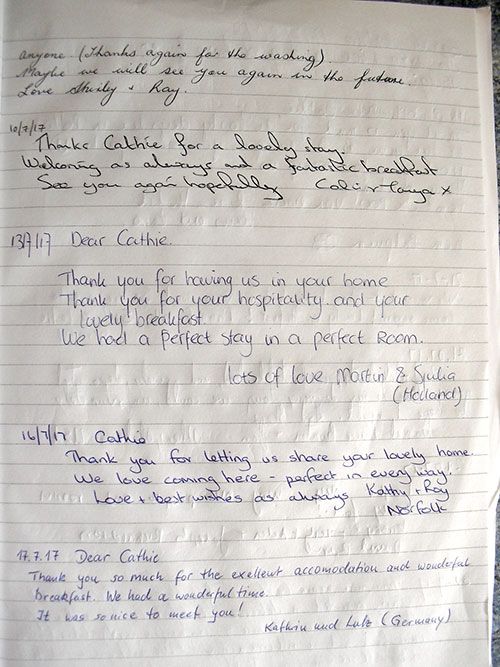 anyone (Thanks again for the washing)
Maybe we will see you again in the future.
Love Shirley + Ray.
10/7/17
Thanks Cathie for a lovely stay.
Welcoming as always and a fantastic breakfast
See you again hopefully Colin + Tanya x
13/7/17 Dear Cathie.
Thank you for having us in your home
Thank you for your hospitality and your
lovely breakfast.
We had a perfect stay in a perfect Room.
lots of love Martin & Sjulia
(Holland)
16/7/17 Cathie
Thank you for letting us share your lovely home.
We love coming here - perfect in every way.
Love + best wishes as always Kathy + Roy
Norfolk
17.7.17 Dear Cathie
Thank you so much for the exellent accomodation and wonderful
breakfast. We had a wonderful time.
It was so nice to meet you!
Kathrin und Lutz (Germany)